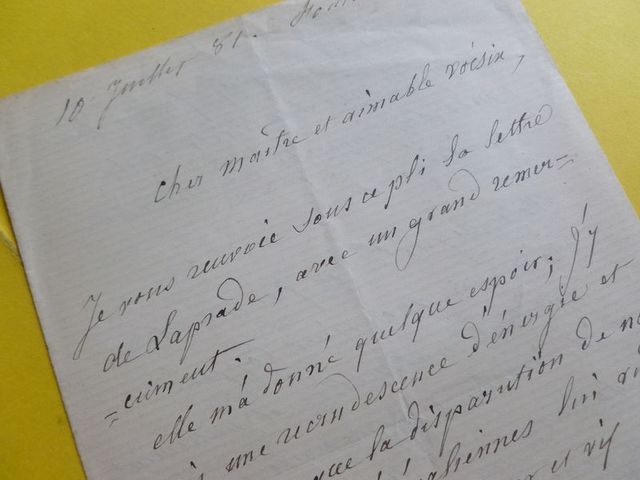 10 Juillet 81.
Cher maître et aimable voisin,
Je vous renvoie sous ce pli la lettre
de Laprade, avec un grand remer-
=ciment.
elle m'a donné quelque espoir; J'y
une recrudescence d'énergie et
que la disparution de
lui
et vif